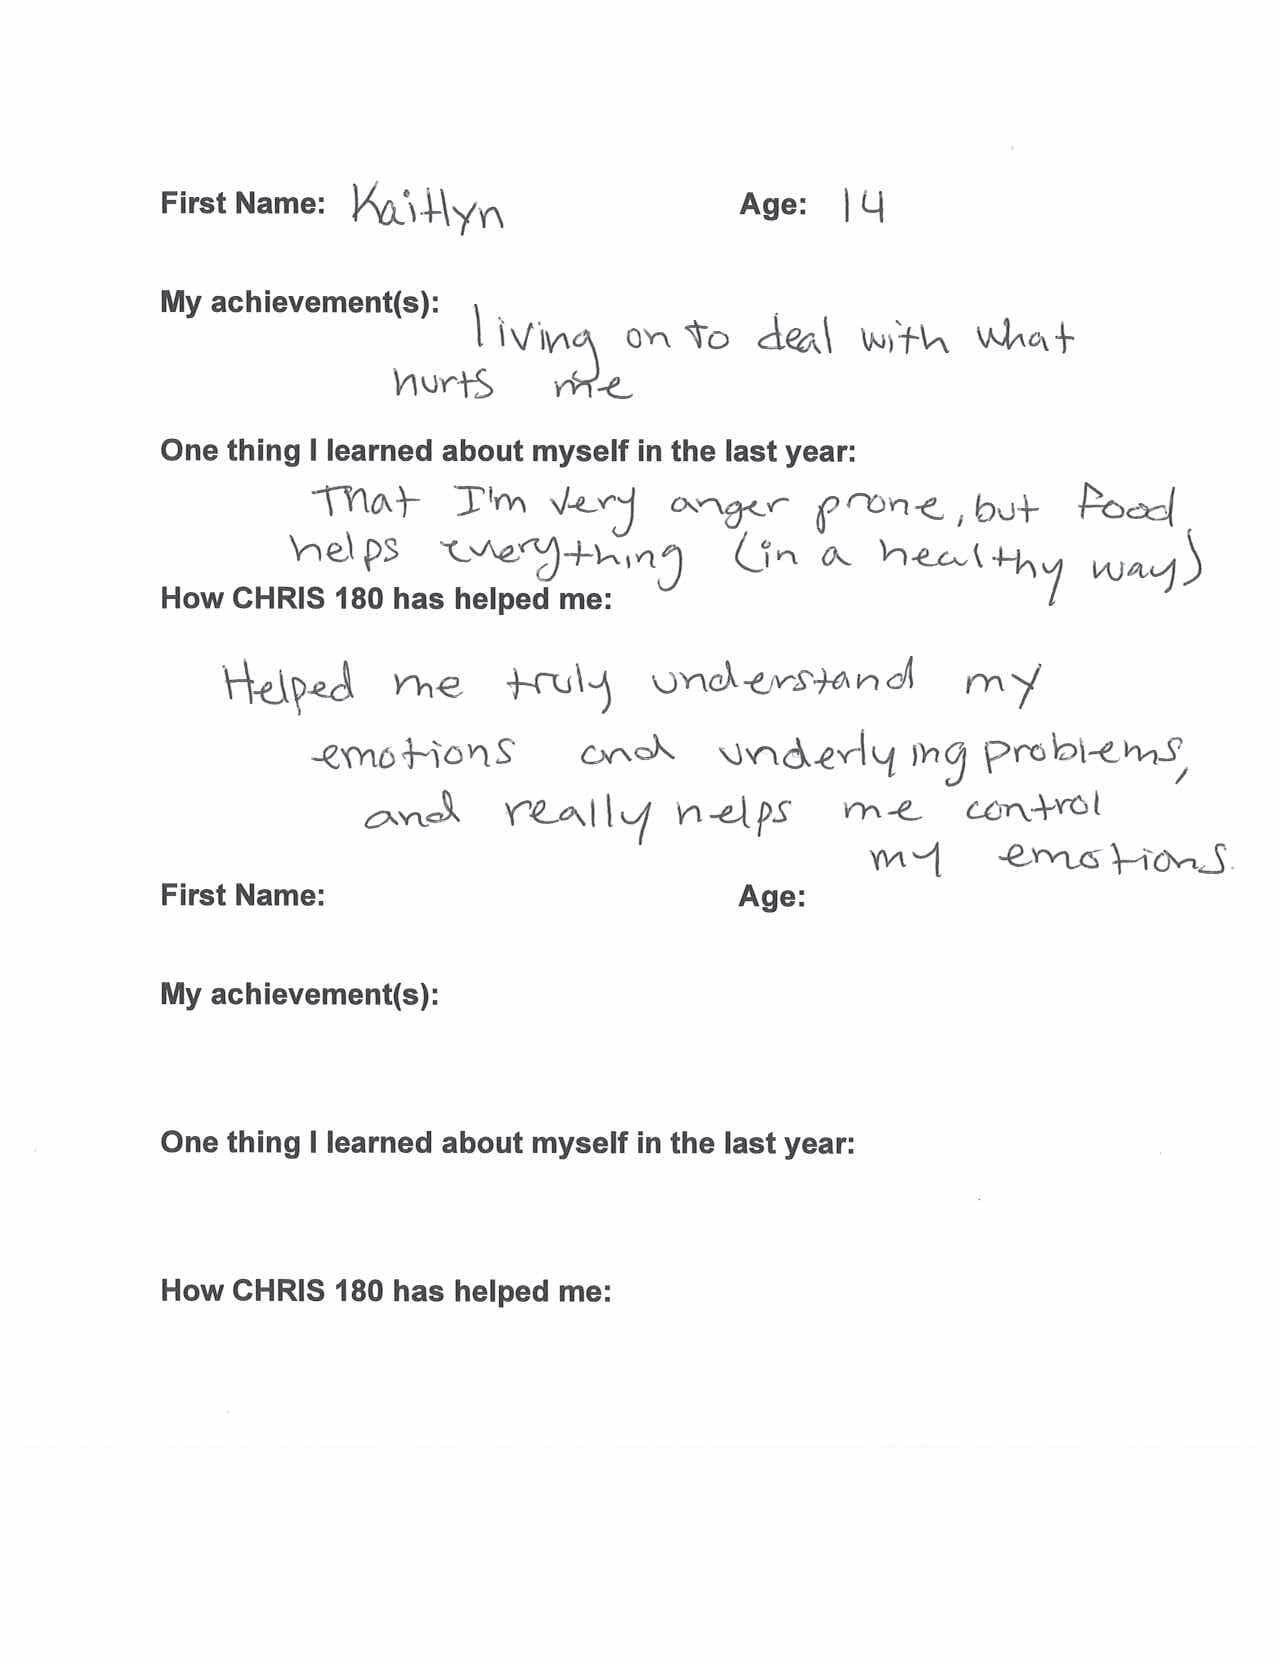 First Name: Kaitlyn Age: 14
My achievement(s):
living on to deal with what
hurts me
One thing I learned about myself in the last year:
That I'm very anger prone, but food
helps everything (in a healthy way)
How CHRIS 180 has helped me:
Helped me truly understand my
emotions and underlying problems,
and really helps me control
my emotions.
First Name: Age:
My achievement(s):
One thing I learned about myself in the last year:
How CHRIS 180 has helped me: